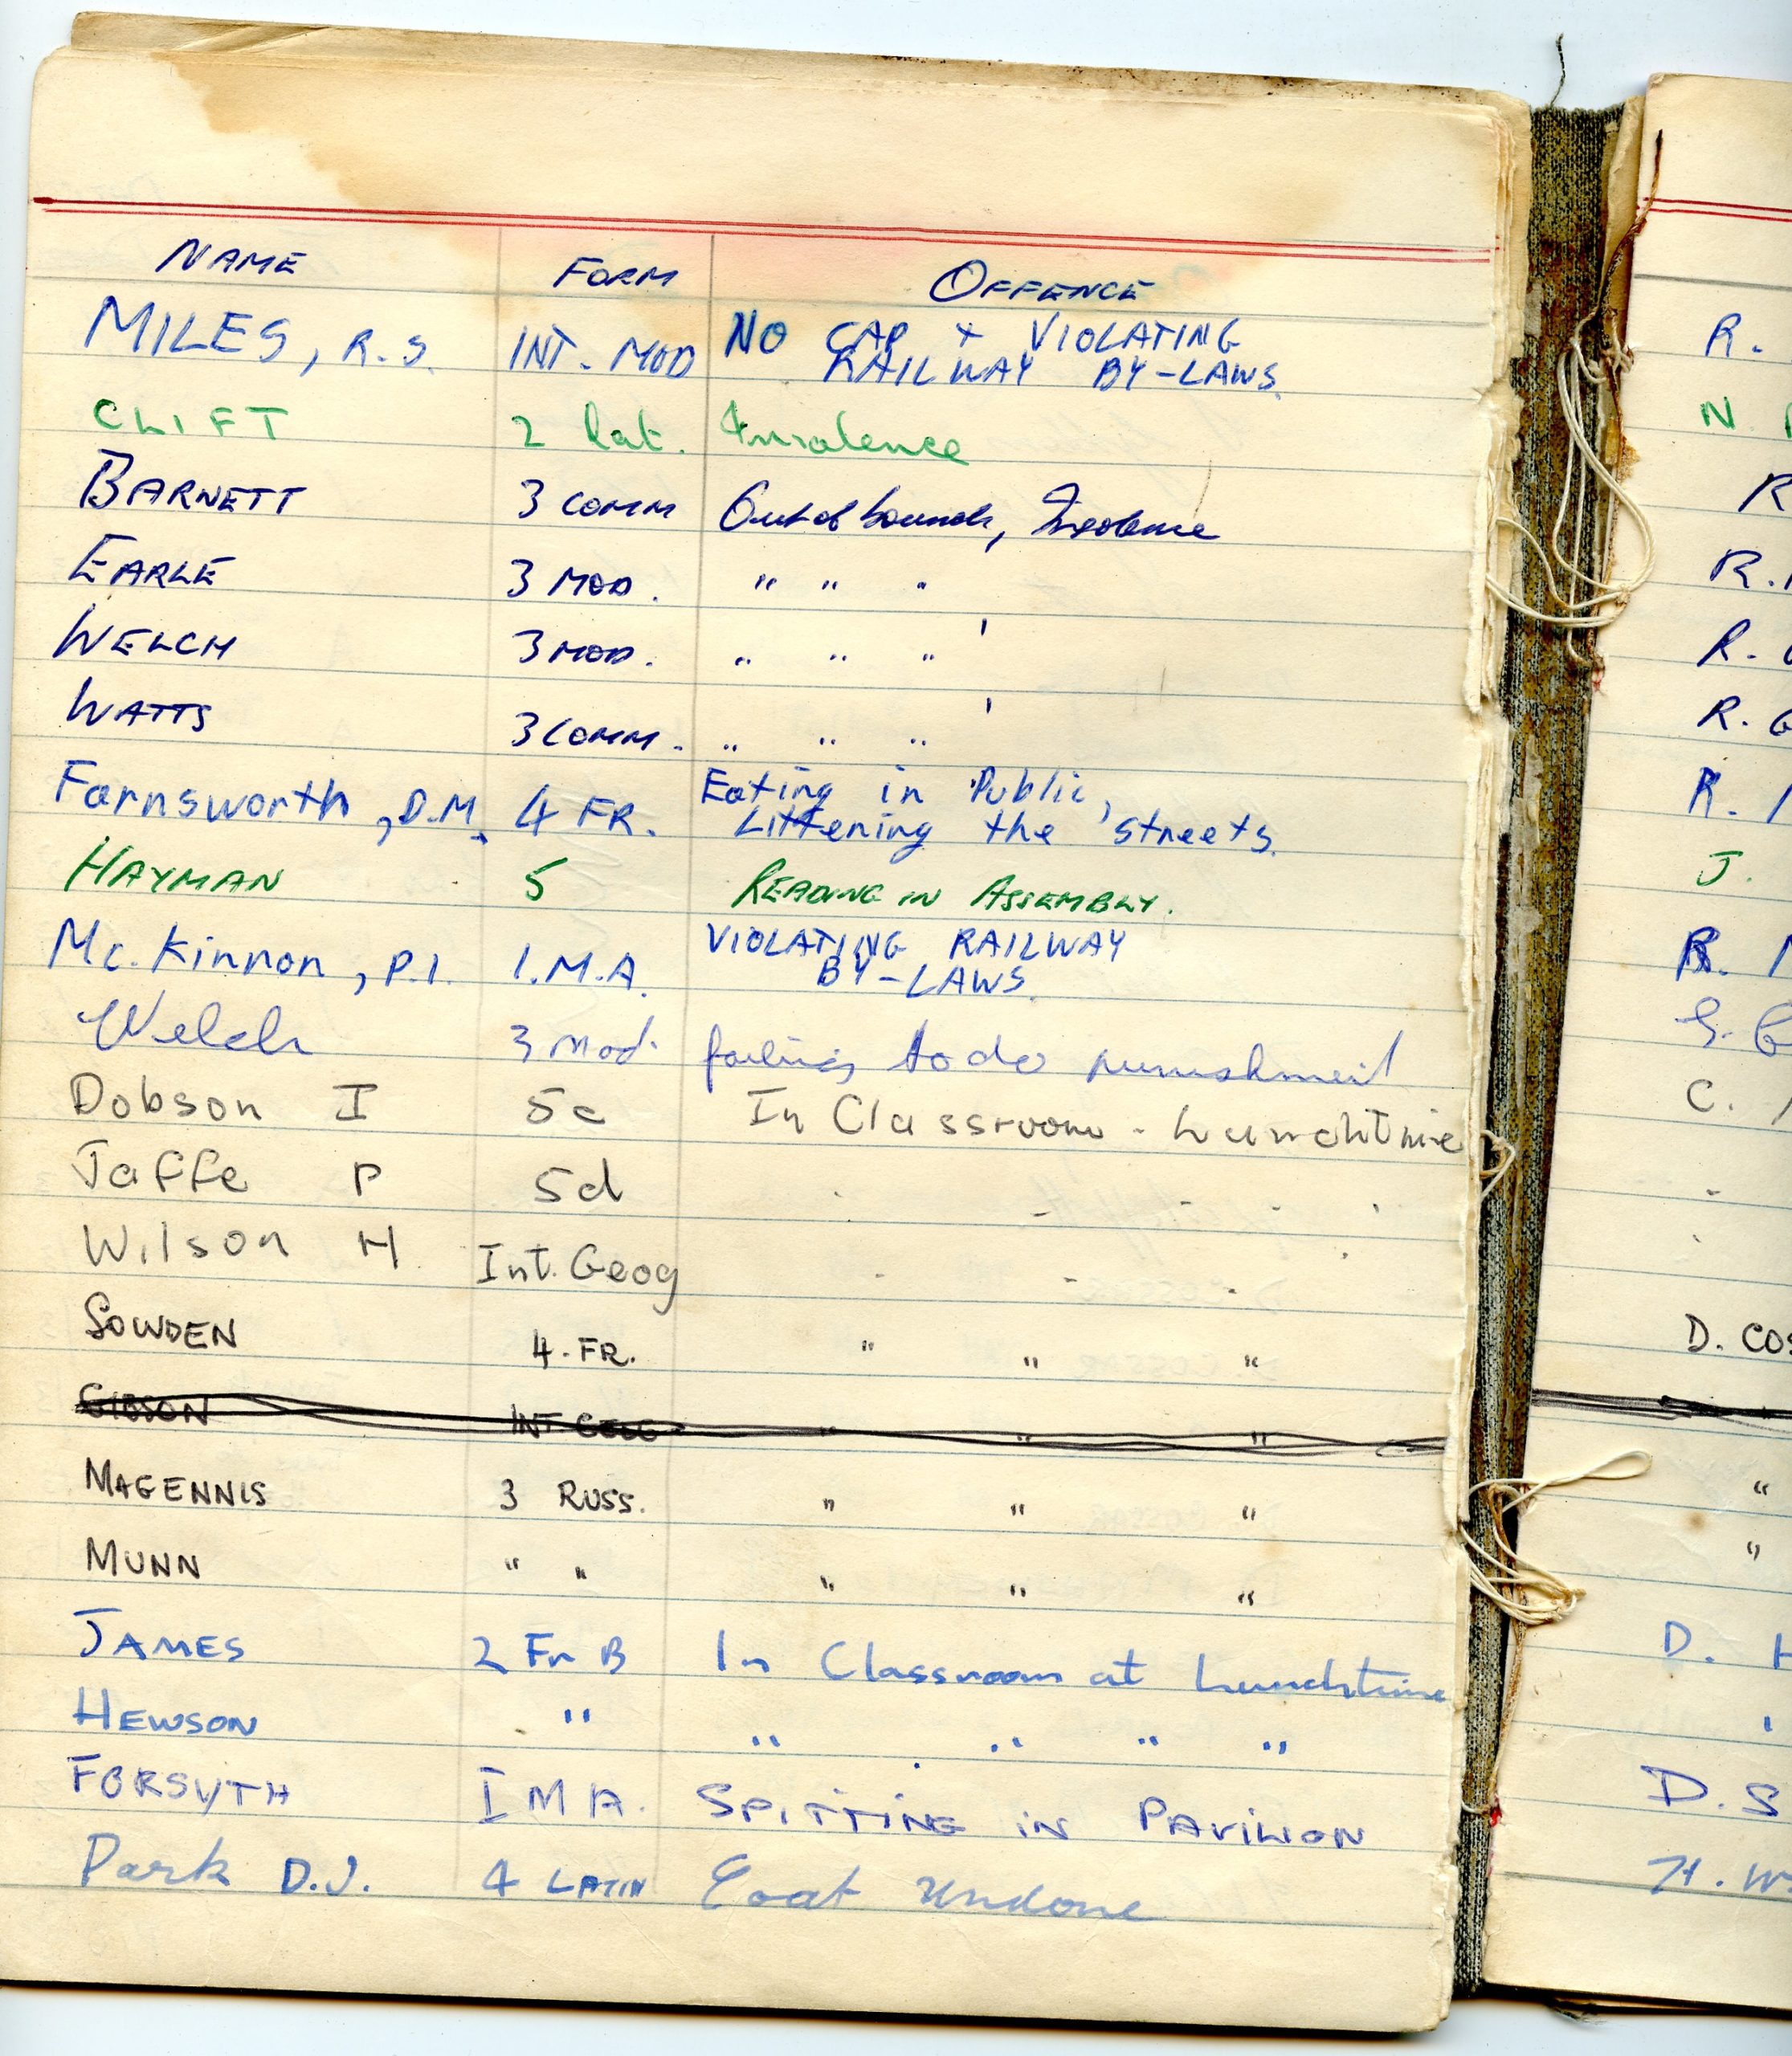 NAME FORM OFFENCE
MILES, R.S. INT. MOD NO CAP + VIOLATING
RAILWAY BY-LAWS.
CLIFT 2 Lat. Insolence
BARNETT 3 COMM Out of bounds, Insolence
EARLE 3 MOD. " " "
WELCH 3 MOD. " " "
WATTS 3 COMM. " " "
Farnsworth, D.M. 4 FR. Eating in Public,
Littering the streets.
HAYMAN 5 READING IN ASSEMBLY.
Mc.Kinnon, P.I. I.M.A. VIOLATING RAILWAY
BY-LAWS.
Welch 3 Mod. failing to do punishment
Dobson I 5c In Classroom - Lunchtime
Jaffe P 5d " " " "
Wilson H Int. Geog " " "
SOWDEN 4. FR. " " "
GIBSON INT GEOG " " "
MAGENNIS 3 RUSS. " " "
MUNN " " " " "
JAMES 2 Fr B In Classroom at Lunchtime
HEWSON " " " " "
FORSYTH I M A. SPITTING IN PAVILION
Park D.J. 4 LATIN Coat undone
R.
N
R
R.
R.
R. G
R.
J.
R.
G.
C.
D. COS
"
"
D. H
D. S
H. W